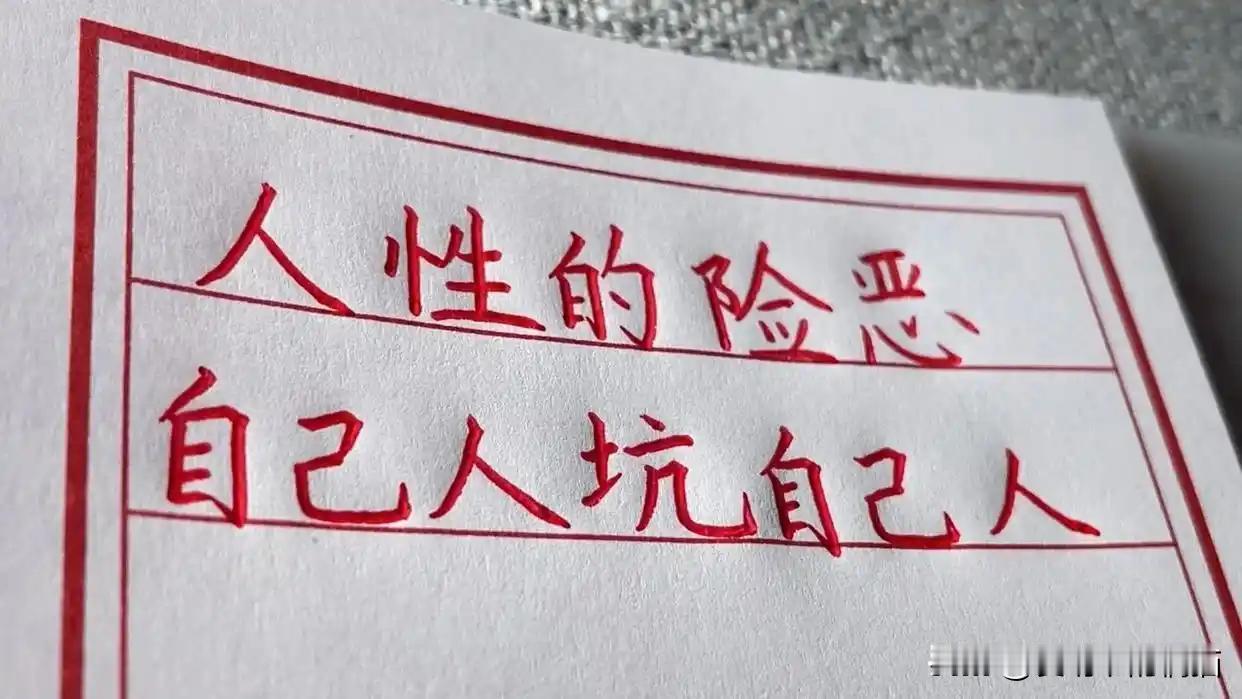 人性的险恶
自己人坑自己人